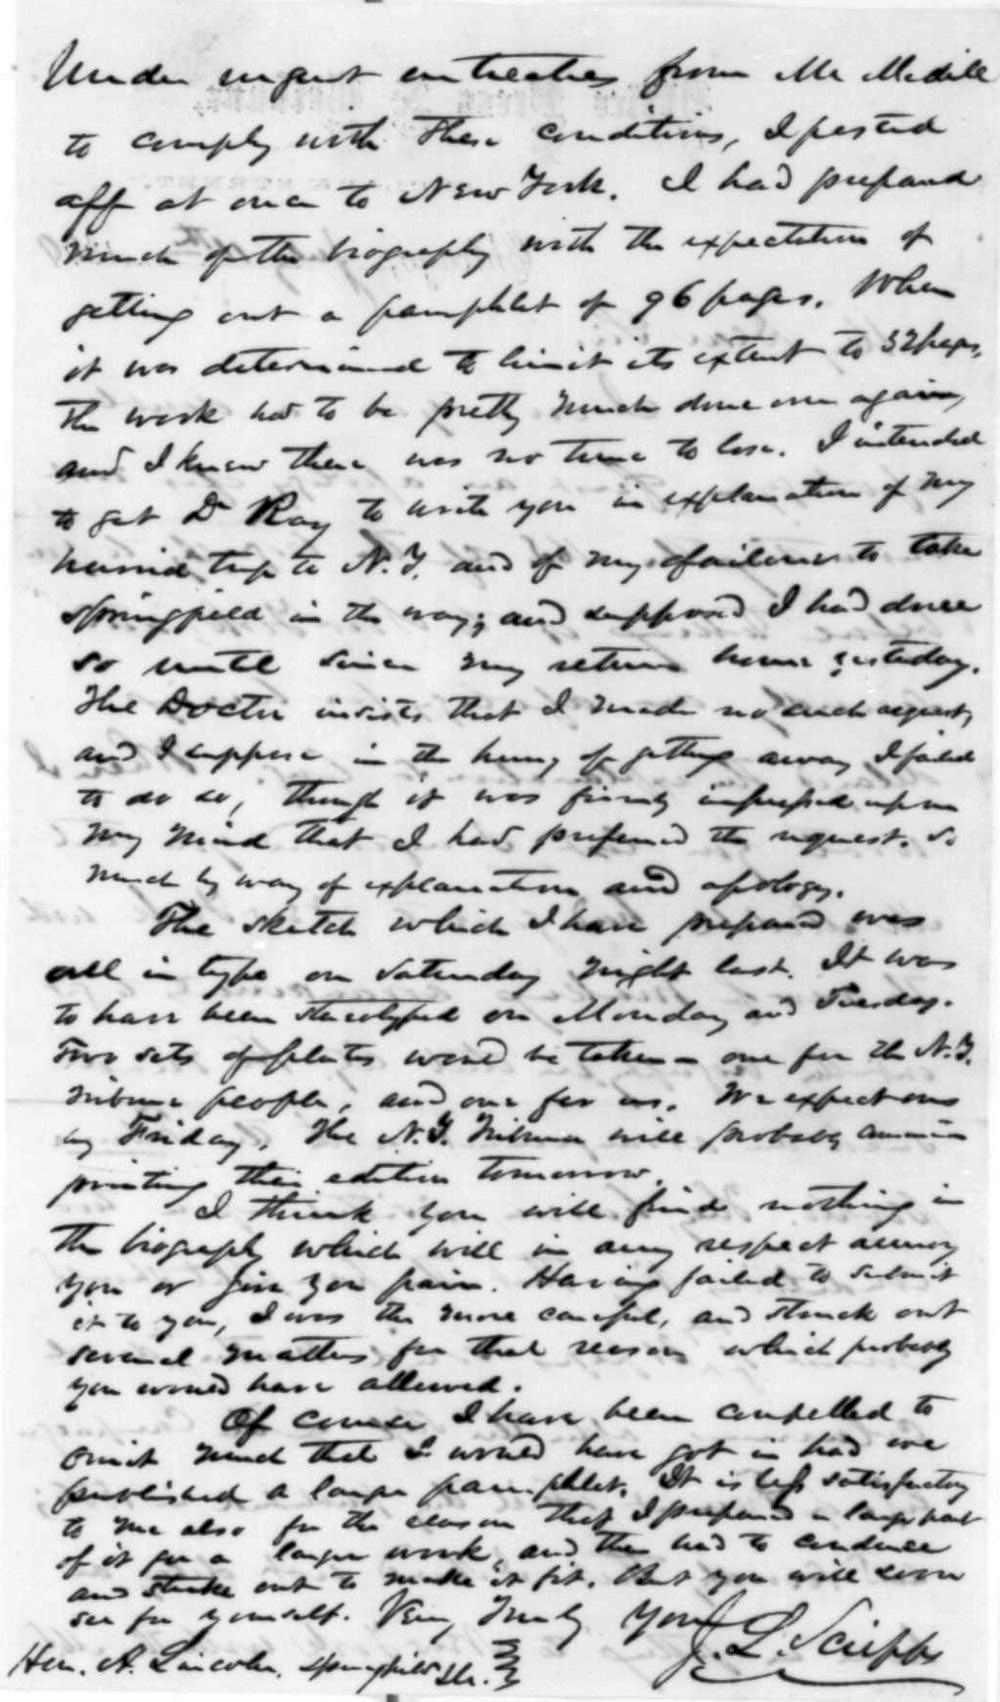 Under urgent entreaties from Mr Medill
to comply with these conditions, I posted
off at once to New York. I had prepared
much of the biography with the expectation of
getting out a pamphlet of 96 pages. When
it was determined to limit its extent to 32 pages,
the work had to be pretty much done over again,
and I knew there was no time to lose. I intended
to get Dr Ray to write you in explanation of my
hurried trip to N.Y. and of my failure to take
Springfield in the way; and supposed I had done
so until since my return home yesterday.
The Doctor insists that I made no such request,
and I suppose in the hurry of getting away I failed
to do so, though it was firmly impressed upon
my mind that I had preferred the request. So
much by way of explanation and apology.
The sketch which I have prepared was
all in type on Saturday night last. It was
to have been stereotyped on Monday and Tuesday.
Two sets of plates would be taken - one for the N.Y.
Tribune people, and one for us. We expect ours
by Friday. The N.Y. Tribune will probably commence
printing their edition tomorrow.
I think you will find nothing in
the biography which will in any respect annoy
you or give you pain. Having failed to submit
it to you, I was the more careful, and struck out
several matters for that reason which probably
you would have allowed.
Of course I have been compelled to
omit much that I would have got in had we
published a larger pamphlet. It is less satisfactory
to me also for the reason that I prepared a large part
of it for a larger work, and then had to condense
and strike out to make it fit. But you will soon
see for yourself. Very Truly Yours
J. L. Scripps
Hon. A. Lincoln, Springfield Ill.